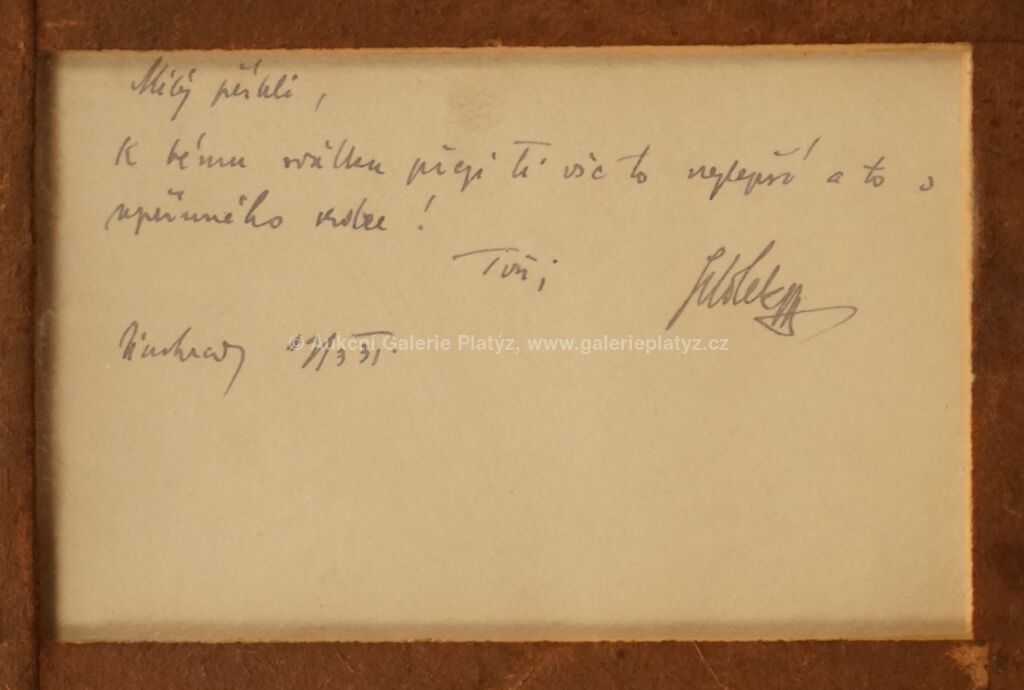 Milý příteli,
K tému svátku přeji Ti vše to nejlepší a to z
upřímného srdce!
Tvůj
© Aukcni Galerie Platýz, www.galerieplatyz.cz